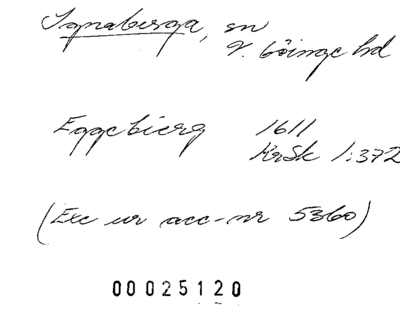 Ignaberga, sn
V. Göinge hd
Eggebierg 1611
KrSk 1:372
(Exc ur acc-nr 5360)
00025120